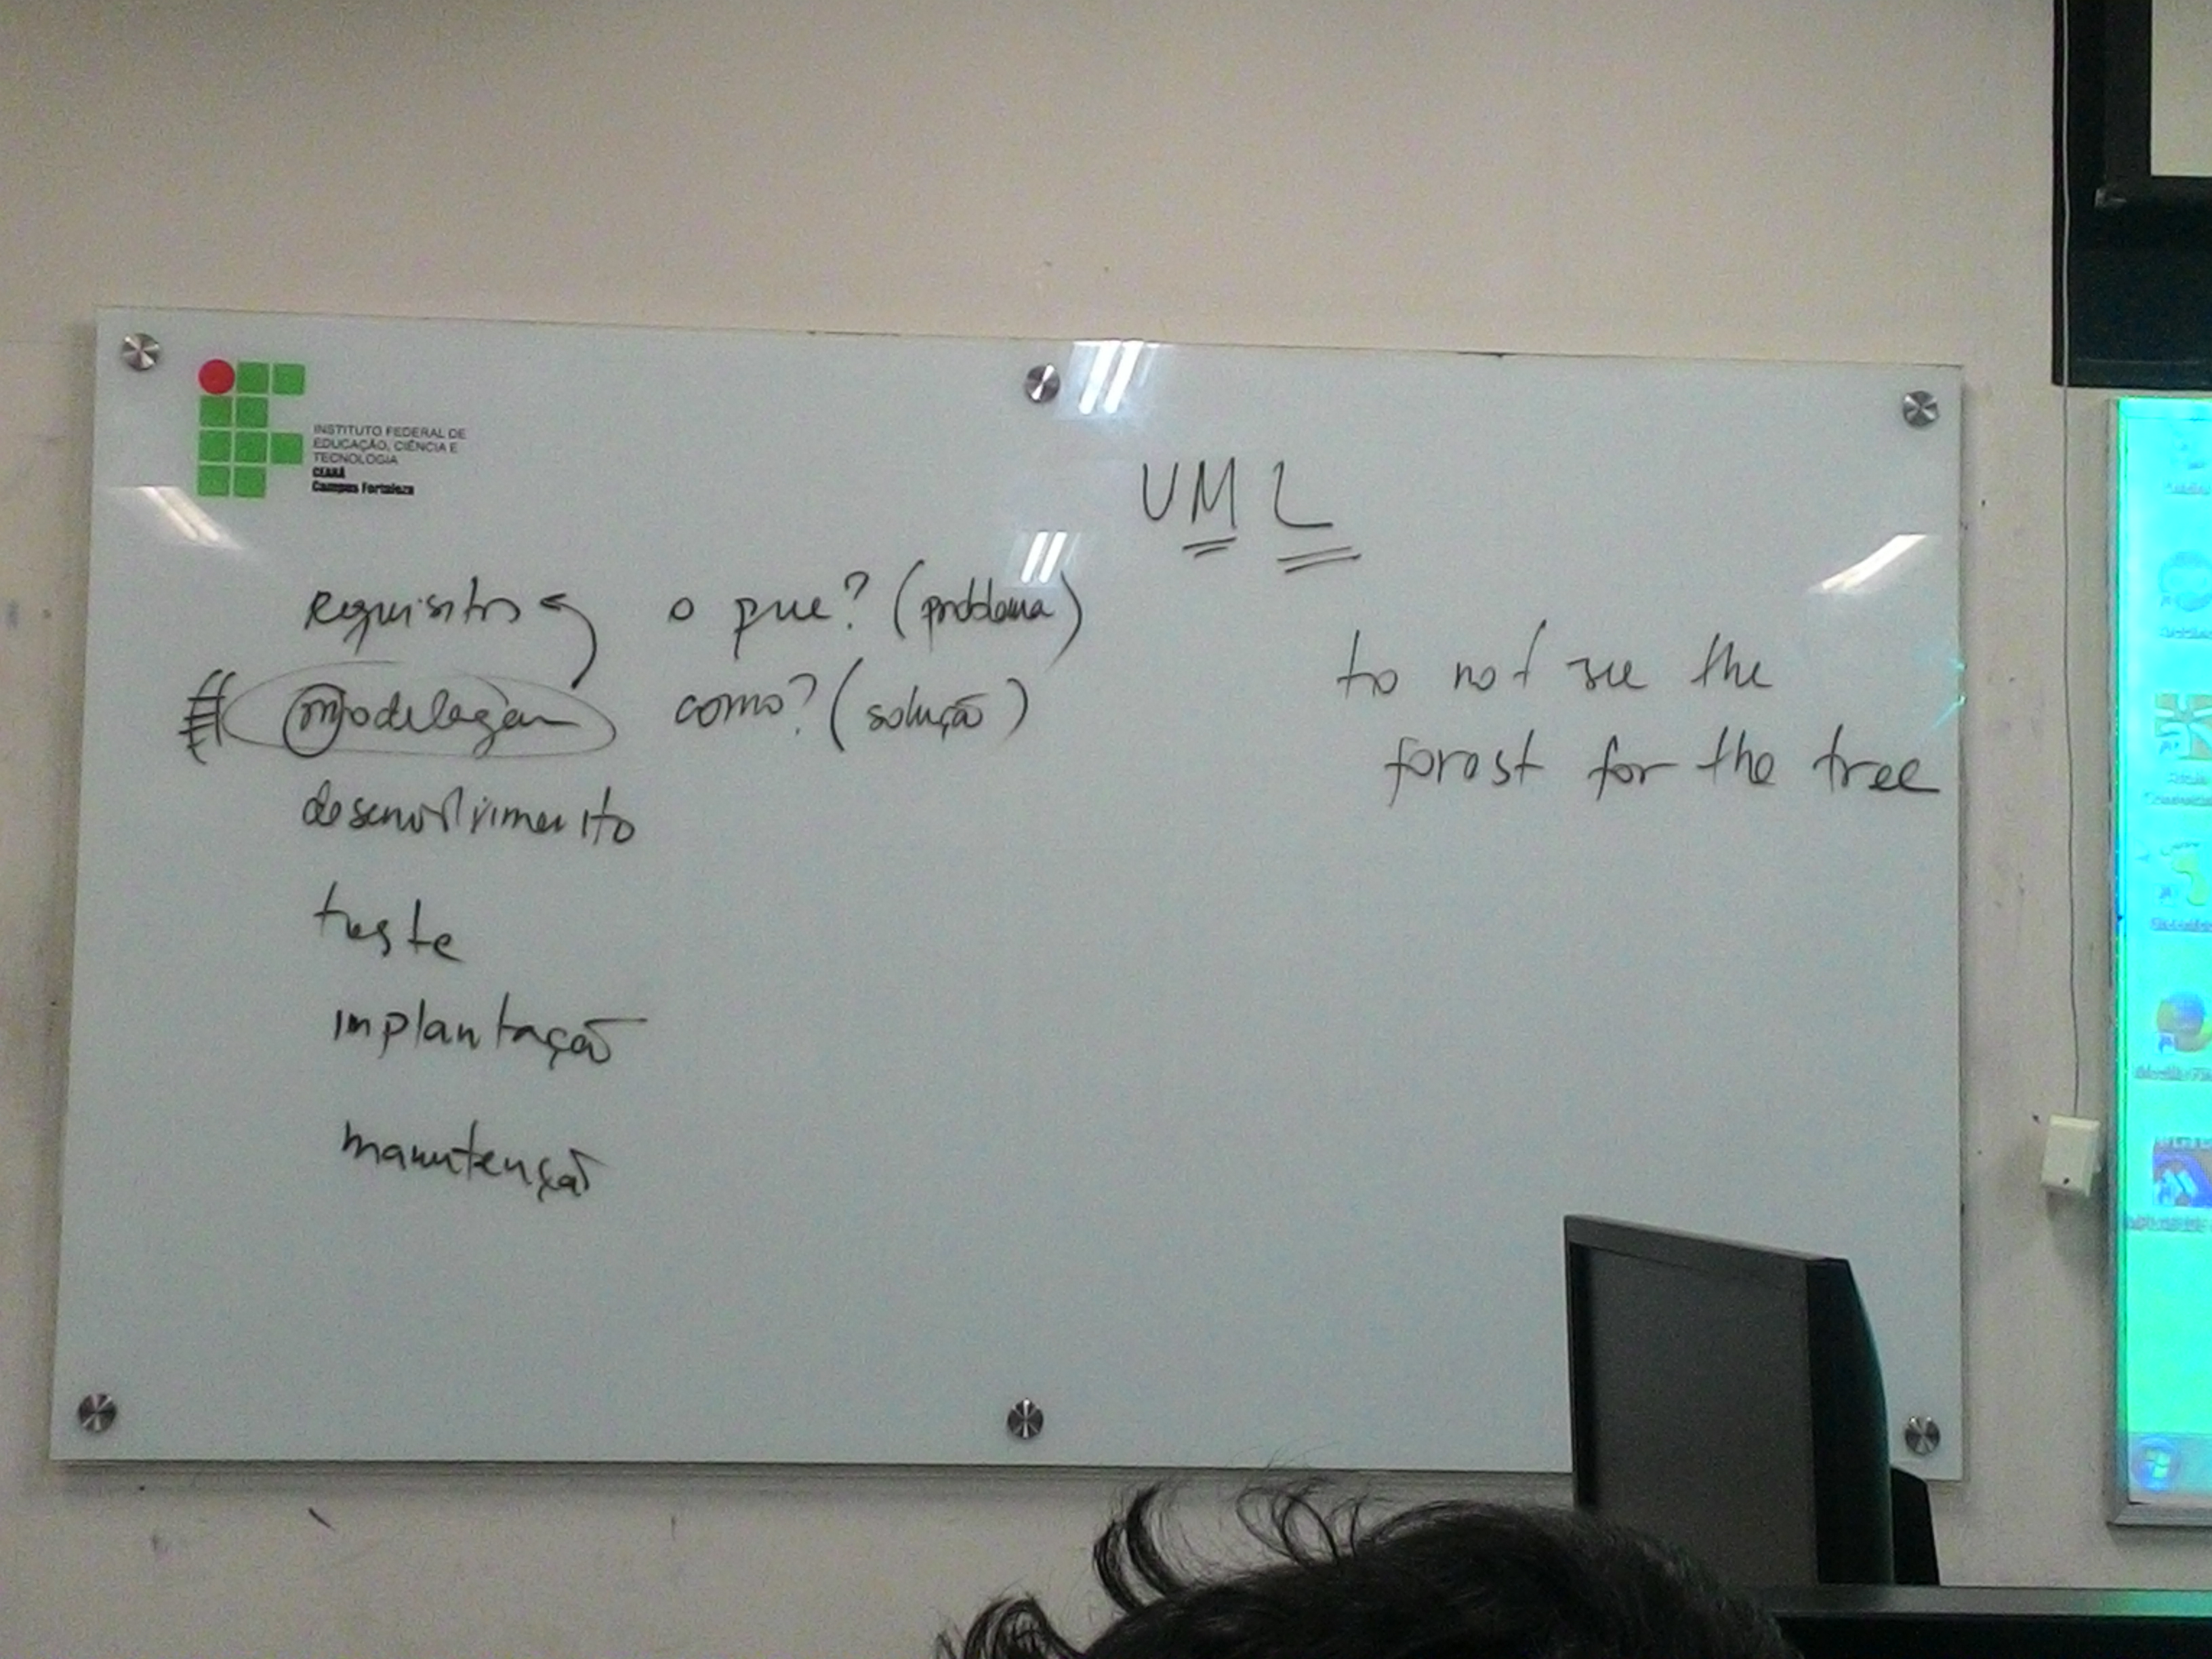 INSTITUTO FEDERAL DE
EDUCAÇÃO, CIÊNCIA E
TECNOLOGIA
CEARÁ
Campus Fortaleza
UML
requisitos o que? (problema)
modelagem como? (solução)
desenvolvimento
teste
implantação
manutenção
to not see the
forest for the tree